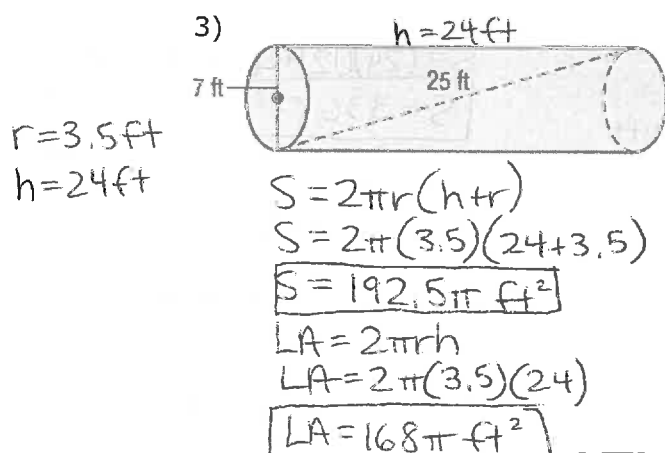 3)
h=24ft
7 ft
25 ft
r=3.5ft
h=24ft
S=2πr(h+r)
S=2π(3.5)(24+3.5)
S=192.5π ft²
LA=2πrh
LA=2π(3.5)(24)
LA=168π ft²